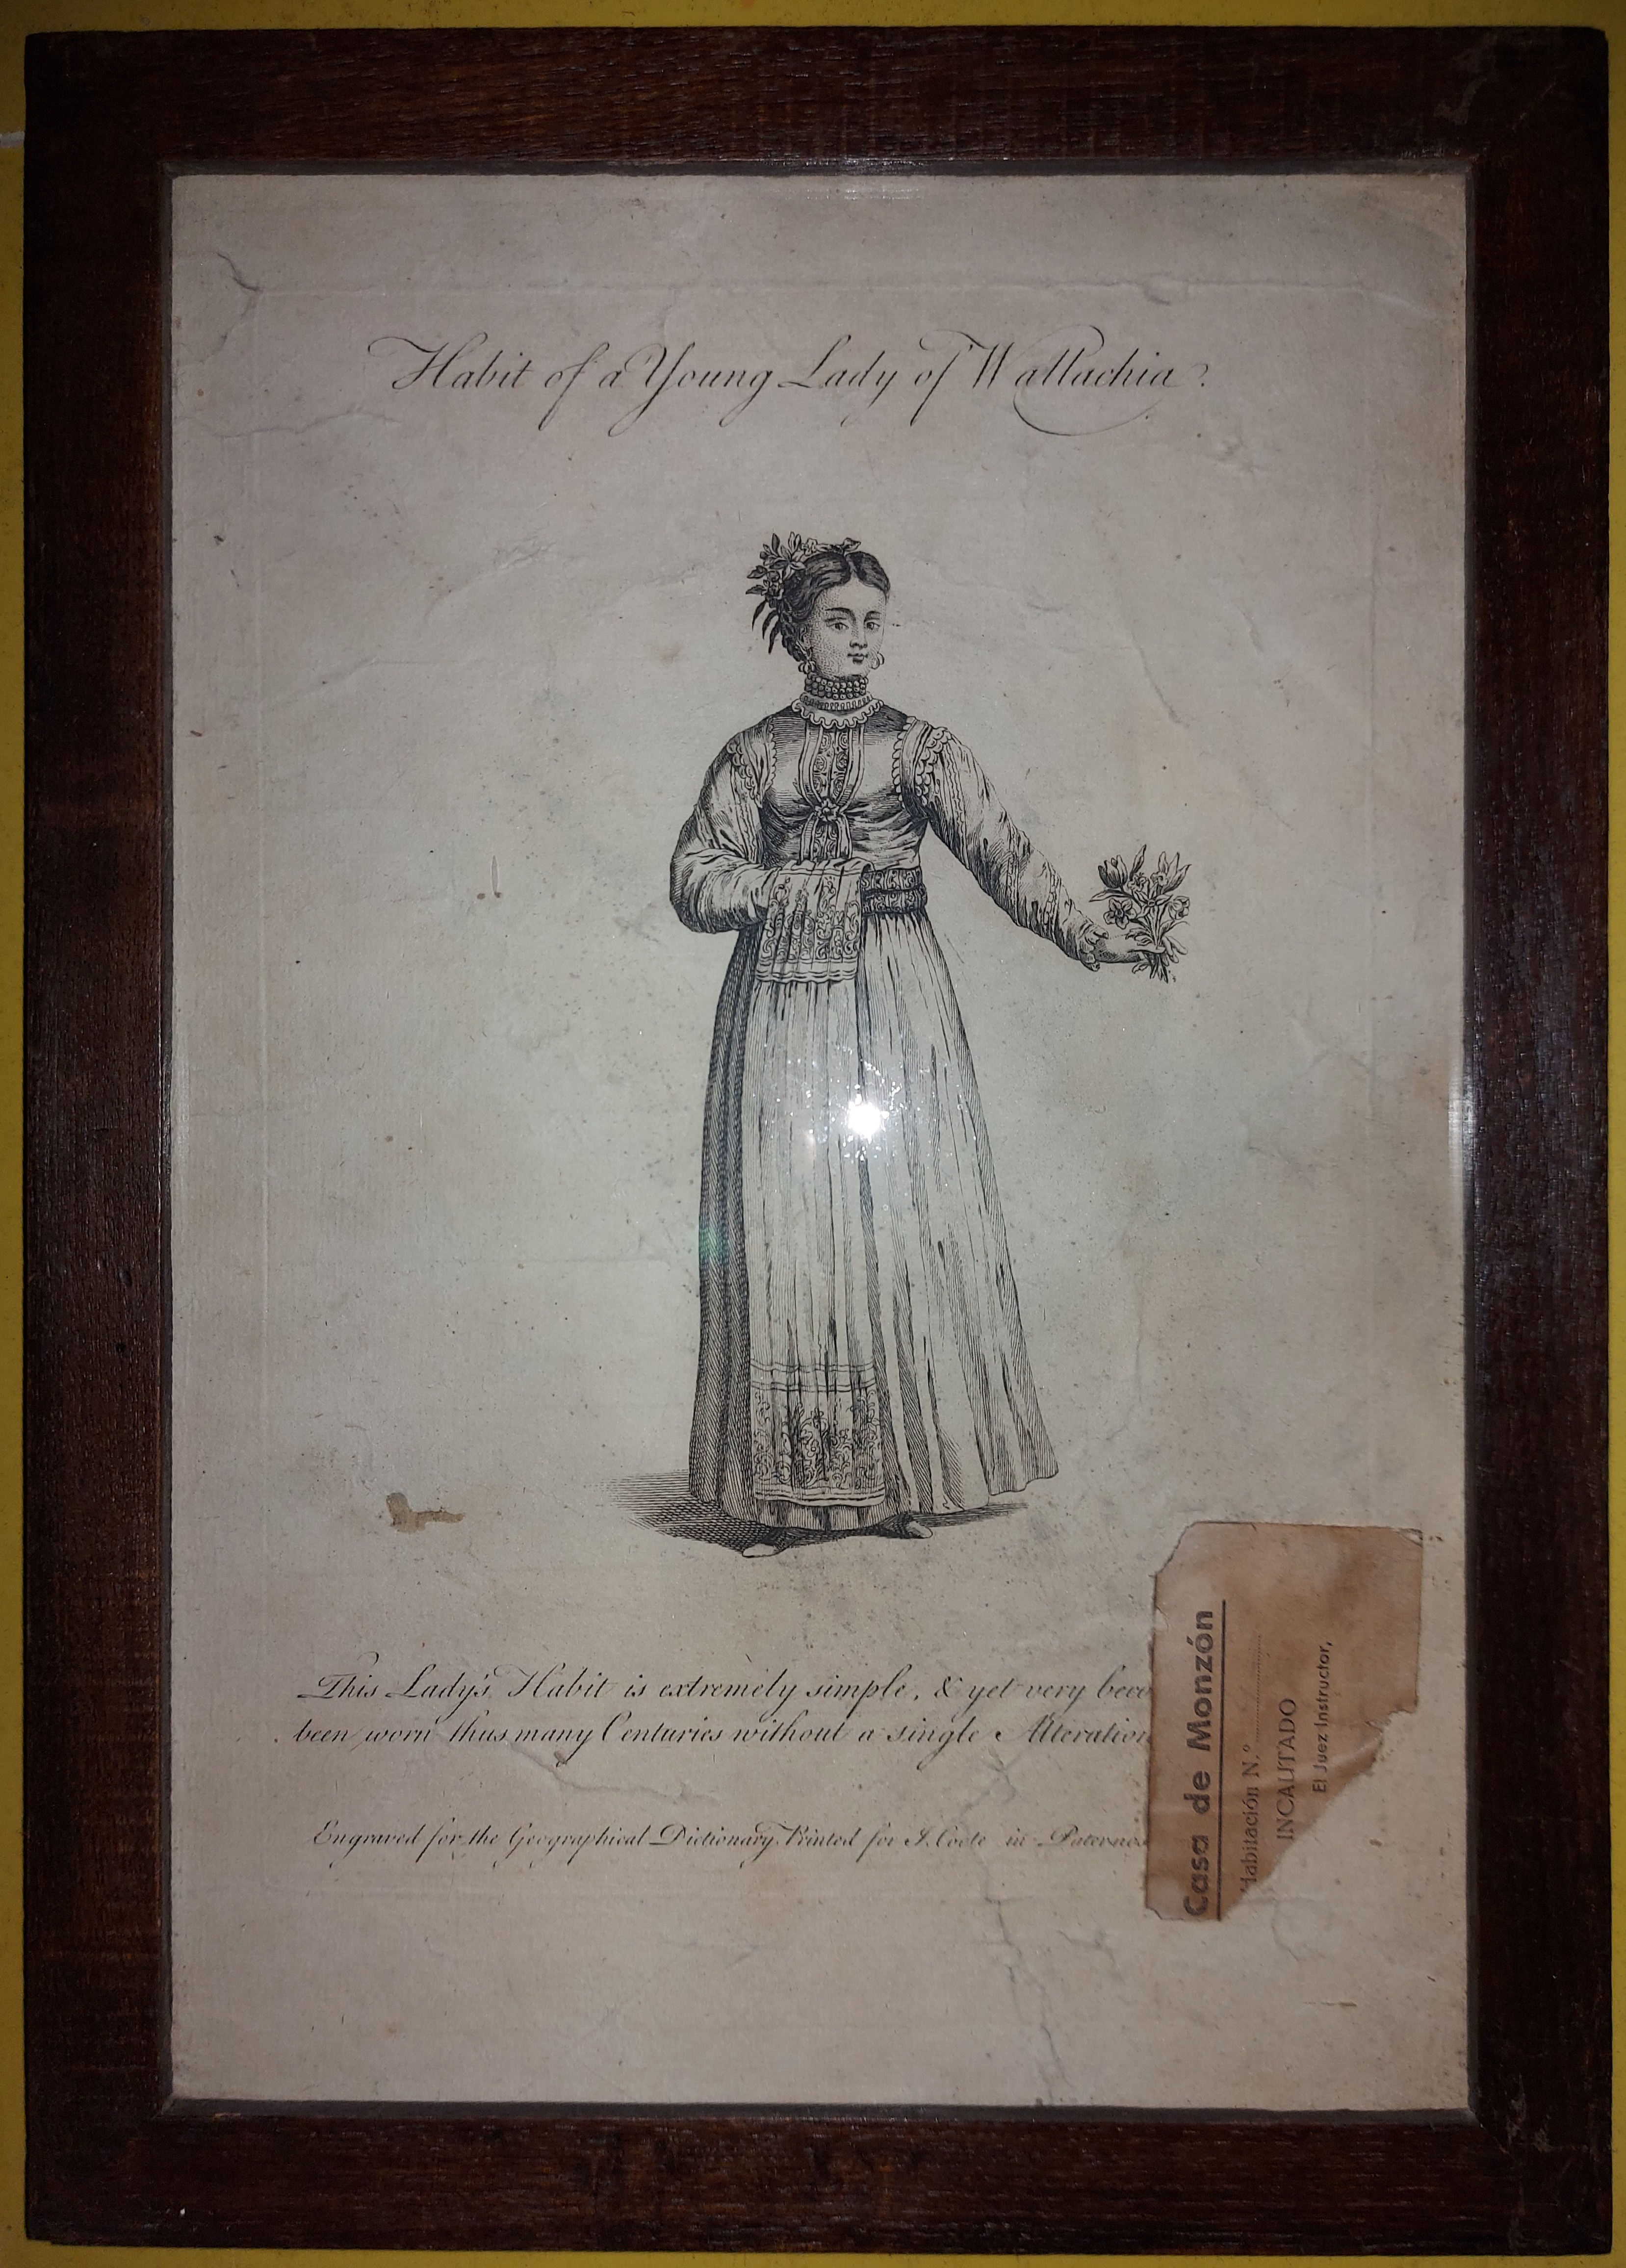 Habit of a Young Lady of Wallachia.
This Lady's Habit is extremely simple, & yet very beco
been worn thus many Centuries without a single Alteration
Engraved for the Geographical Dictionary Printed for J. Coote in Paternos
Casa de Monzón
Habitación N.º
INCAUTADO
El Juez Instructor,